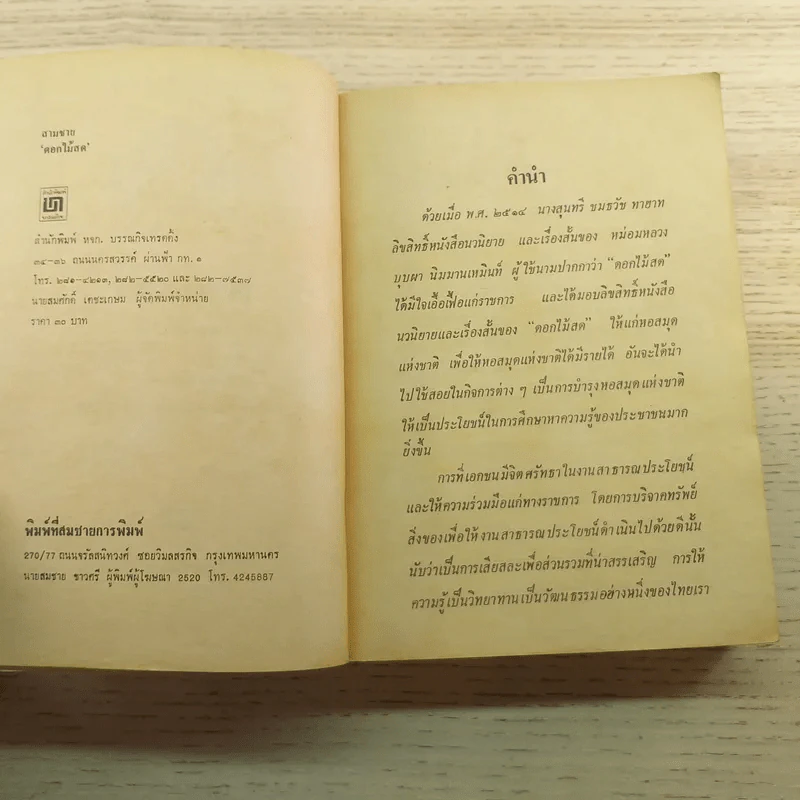 สามชาย
'ดอกไม้สด'
สำนักพิมพ์ หจก. บรรณกิจเทรดดิ้ง
๓๔–๓๖ ถนนนครสวรรค์ ผ่านฟ้า กท. ๑
โทร. ๒๘๑–๔๒๑๓, ๒๘๒–๕๕๒๐ และ ๒๘๒–๗๕๓๗
นายสมศักดิ์ เตชะเกษม ผู้จัดพิมพ์จำหน่าย
ราคา ๓๐ บาท
พิมพ์ที่สมชายการพิมพ์
270/77 ถนนจรัลสนิทวงศ์ ซอยวิมลสรกิจ กรุงเทพมหานคร
นายสมชาย ชาวศรี ผู้พิมพ์ผู้โฆษณา 2520 โทร. 4245887
คำนำ
ด้วยเมื่อ พ.ศ. ๒๕๑๔ นางสุนทรี ชมธวัช ทายาท
ลิขสิทธิ์หนังสือนวนิยาย และเรื่องสั้นของ หม่อมหลวง
บุบผา นิมมานเหมินท์ ผู้ใช้นามปากกาว่า “ดอกไม้สด”
ได้มีใจเอื้อเฟื้อแก่ราชการ และได้มอบลิขสิทธิ์หนังสือ
นวนิยายและเรื่องสั้นของ “ดอกไม้สด” ให้แก่หอสมุด
แห่งชาติ เพื่อให้หอสมุดแห่งชาติได้มีรายได้ อันจะได้นำ
ไปใช้สอยในกิจการต่าง ๆ เป็นการบำรุงหอสมุดแห่งชาติ
ให้เป็นประโยชน์ในการศึกษาหาความรู้ของประชาชนมาก
ยิ่งขึ้น
การที่เอกชนมีจิตศรัทธาในงานสาธารณประโยชน์
และให้ความร่วมมือแก่ทางราชการ โดยการบริจาคทรัพย์
สิ่งของเพื่อให้งานสาธารณประโยชน์ดำเนินไปด้วยดีนั้น
นับว่าเป็นการเสียสละเพื่อส่วนรวมที่น่าสรรเสริญ การให้
ความรู้เป็นวิทยาทานเป็นวัฒนธรรมอย่างหนึ่งของไทยเรา